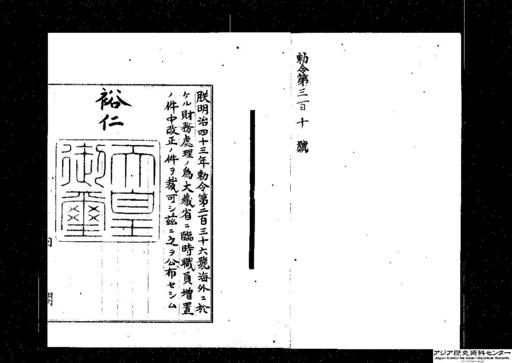 勅令第三百十號
朕明治四十三年勅令第二百三十六號海外ニ於
ケル財務處理ノ爲大藏省ニ臨時職員增置
ノ件中改正ノ件ヲ裁可シ茲ニ之ヲ公布セシム
裕仁
天皇
御璽
アジア歴史資料センター
Japan Center for Asian Historical Records